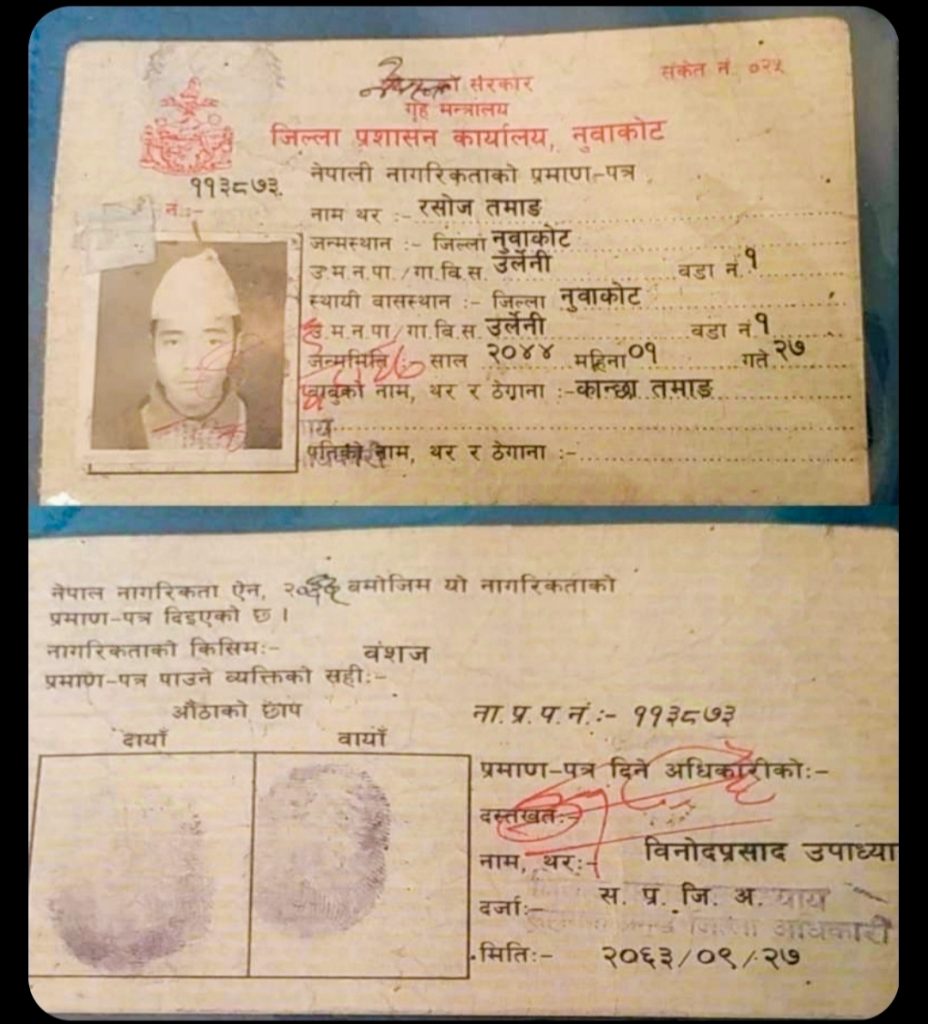 संकेत नं. ०२५
नेपालको सरकार
गृह मन्त्रालय
जिल्ला प्रशासन कार्यालय, नुवाकोट
नेपाली नागरिकताको प्रमाण-पत्र
११३८७३
नं.:-
नाम थर :- रसोज तमाङ
जन्मस्थान :- जिल्ला नुवाकोट
उ.म.न.पा./गा.वि.स. उर्लेनी वडा नं १
स्थायी वासस्थान :- जिल्ला नुवाकोट
उ.म.न.पा/गा.वि.स. उर्लेनी वडा नं १
जन्ममिति :- साल २०४४ महिना ०१ गते २७
बाबुको नाम, थर र ठेगाना :- कान्छा तमाङ
पतिको नाम, थर र ठेगाना :-
नेपाल नागरिकता ऐन, बमोजिम यो नागरिकताको
प्रमाण-पत्र दिइएको छ ।
नागरिकताको किसिम:- वंशज
प्रमाण-पत्र पाउने व्यक्तिको सही:-
औंठाको छाप
दायाँ वायाँ
ना.प्र.प.नं.:- ११३८७३
प्रमाण-पत्र दिने अधिकारीको:-
दस्तखत:-
नाम, थर:- विनोदप्रसाद उपाध्या
दर्जा:- स. प्र. जि. अ.
जिल्ला अधिकारी
मिति:- २०६३/०९/२७